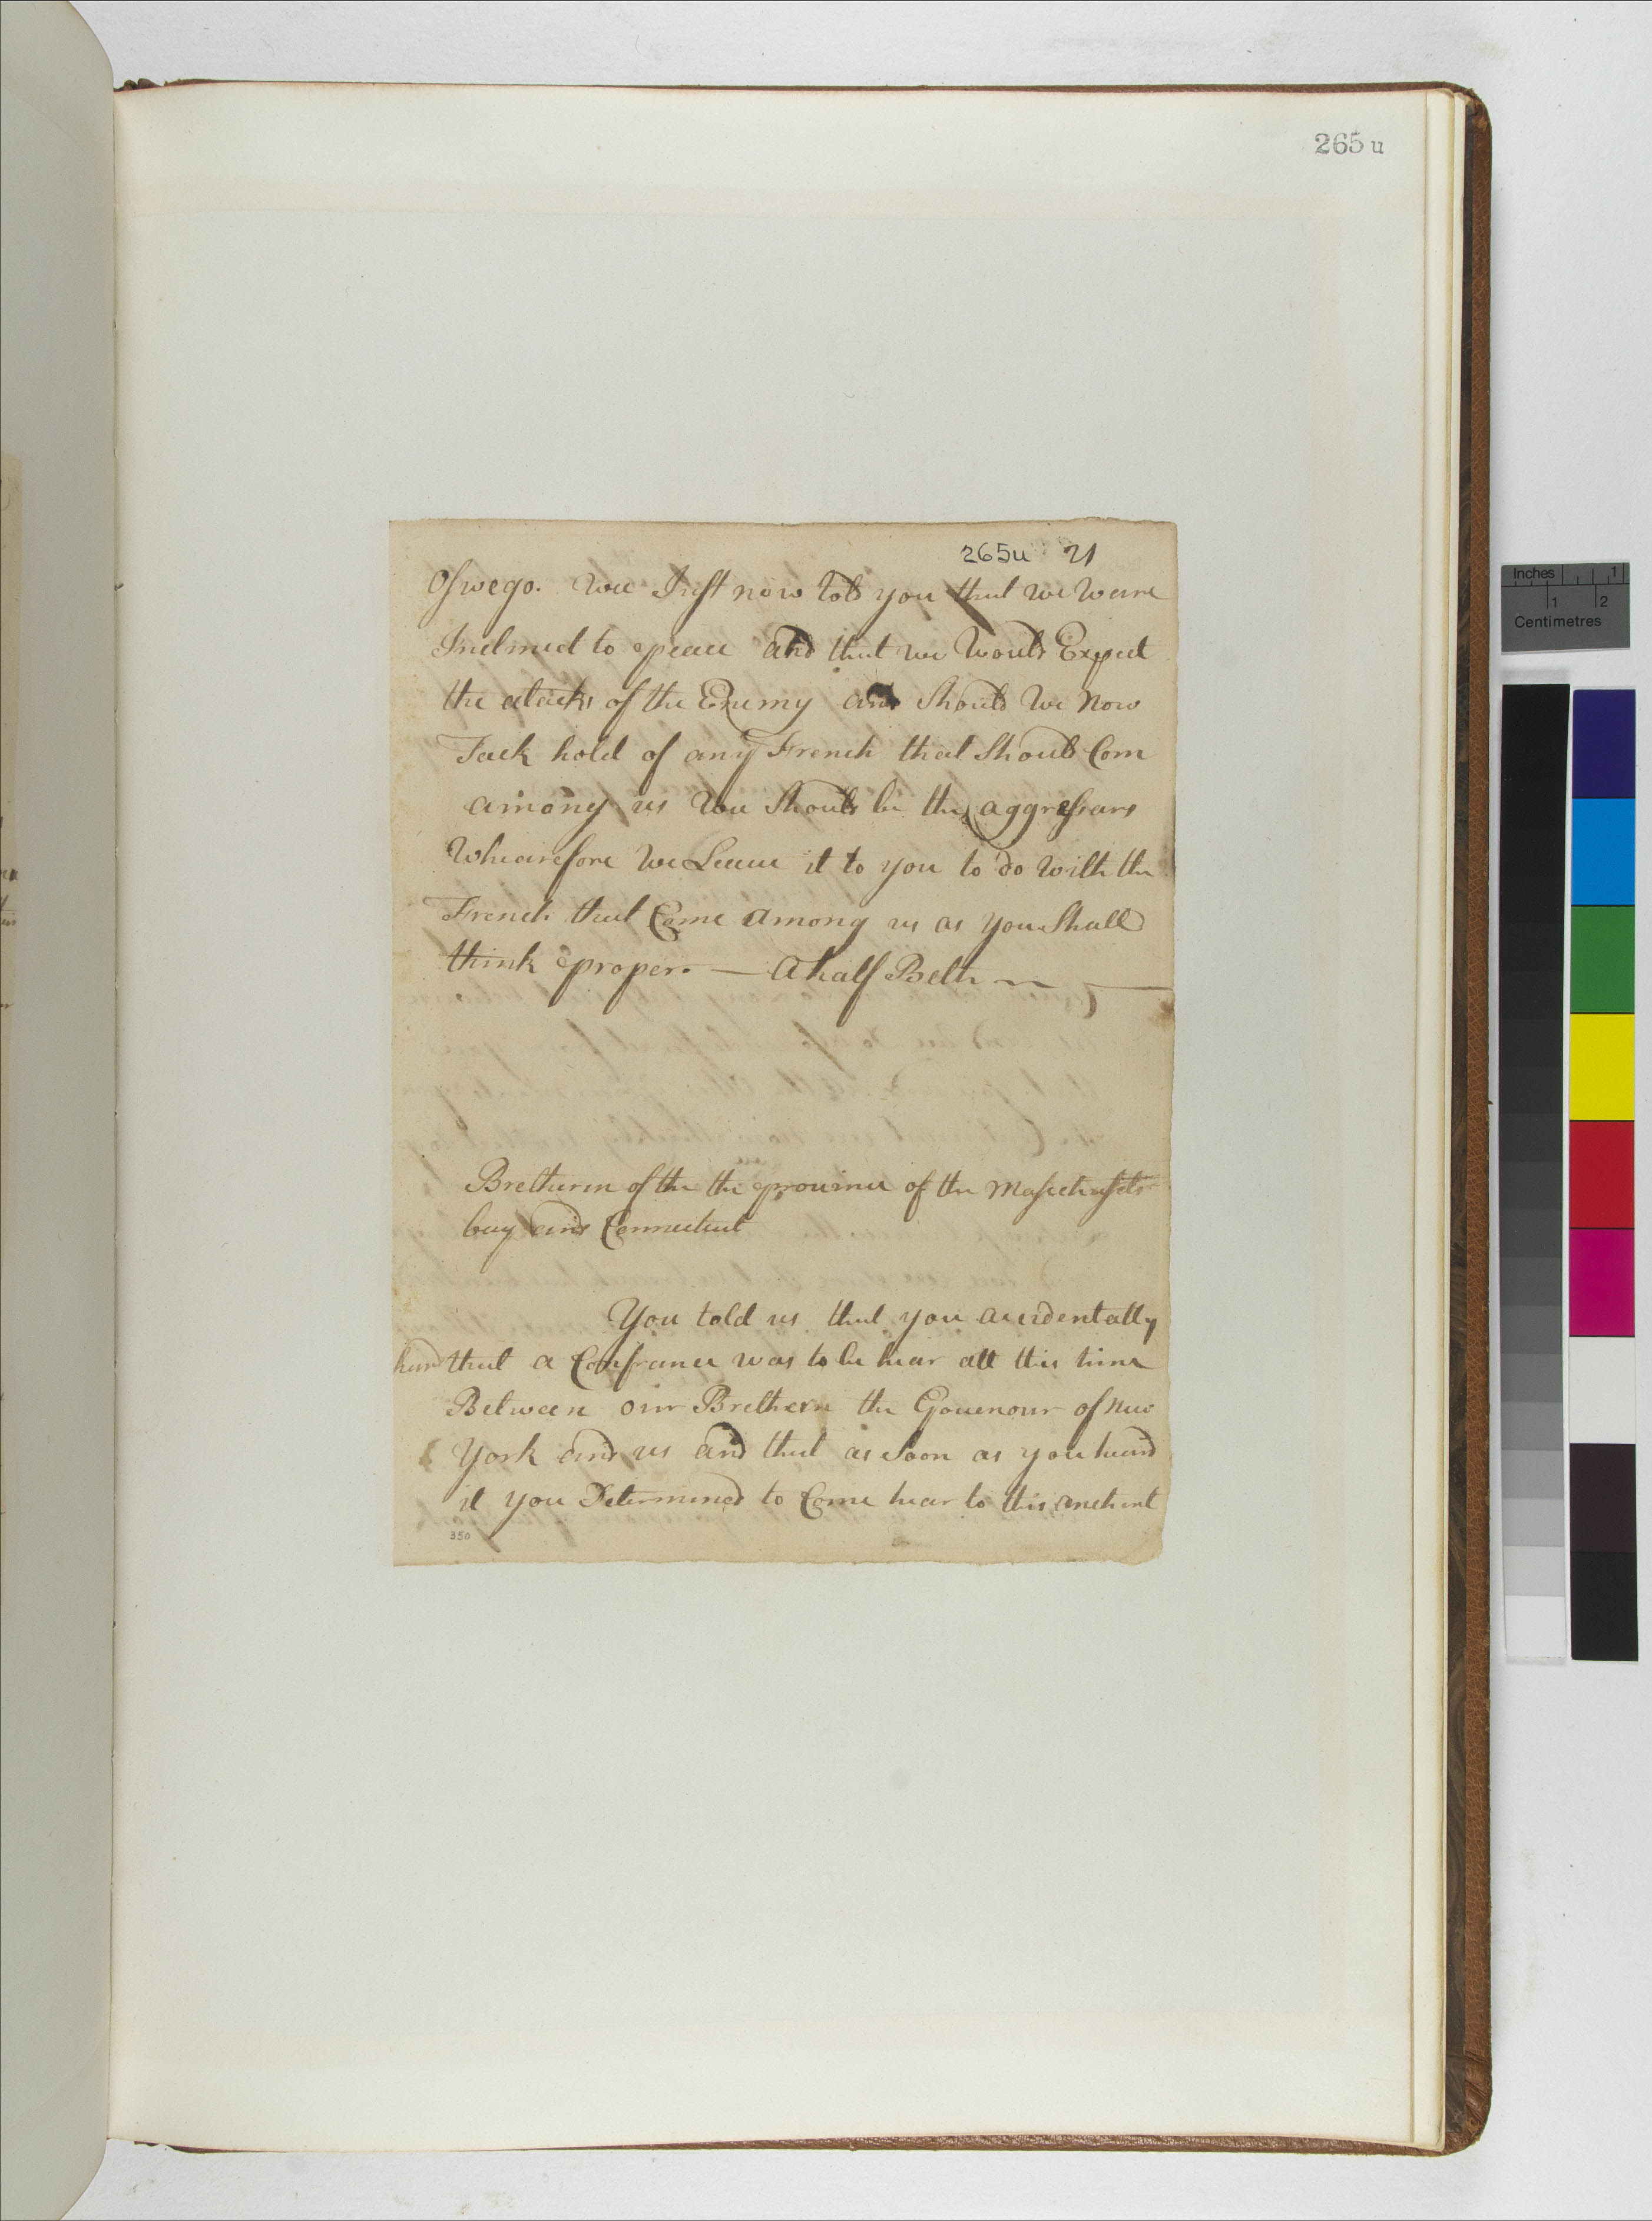 265u
265u 21
Oswego. Wee Just now told you that we Weare
Inclined to peace and that we Would Expect
the atacks of the Enemy and Should We Now
Tack hold of any French that Should Com
among us Wee Should be the aggressars
Whearefore We Leave it to you to do With the
French that Come among us as you Shall
think proper. — A half Belt —
Bretheren of the the province of the Massachusets
bay and Connecticut
You told us that you accidentally
heard that a Confrance was to be hear att this time
Between our Brethern the Gouenour of New
York and us and that as Soon as you heard
it you Determined to Come hear to this anchent
350
Inches 1
1 2
Centimetres